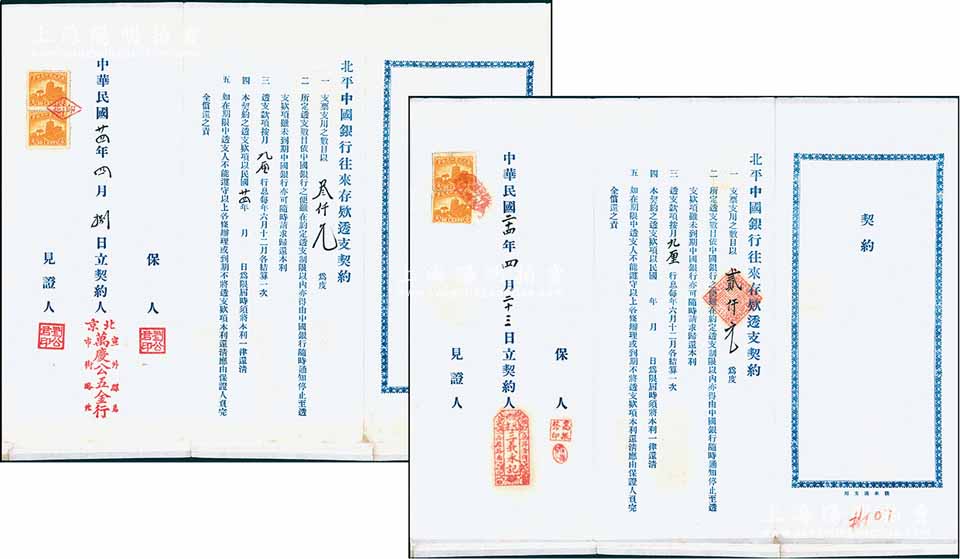 北平中國銀行往來存欵透支契約
一 支票支用之數目以 叄仟元 為度
二 所定透支數目依中國銀行之便雖在約定透支制限以內亦得由中國銀行隨時通知停止至透
支欵項雖未到期中國銀行亦可隨時請求歸還本利
三 透支款項按月 九厘 行息每年六月十二月各結算一次
四 本契約之透支欵項以民國 廿五 年 月 日為限屆時須將本利一律還清
五 如在期限中透支人不能遵守以上各條辦理或到期不將透支欵項本利還清應由保證人負完
全償還之責
中華民國 廿四 年 四 月 捌 日立契約人
北京
萬慶公五金行
保人
見證人
契約
北平中國銀行往來存欵透支契約
一 支票支用之數目以 貳仟元 為度
二 所定透支數目依中國銀行之便雖在約定透支制限以內亦得由中國銀行隨時通知停止至透
支欵項雖未到期中國銀行亦可隨時請求歸還本利
三 透支款項按月 九厘 行息每年六月十二月各結算一次
四 本契約之透支欵項以民國 年 月 日為限屆時須將本利一律還清
五 如在期限中透支人不能遵守以上各條辦理或到期不將透支欵項本利還清應由保證人負完
全償還之責
中華民國 二十四 年 四 月 二十三 日立契約人
三義永記
保人
見證人